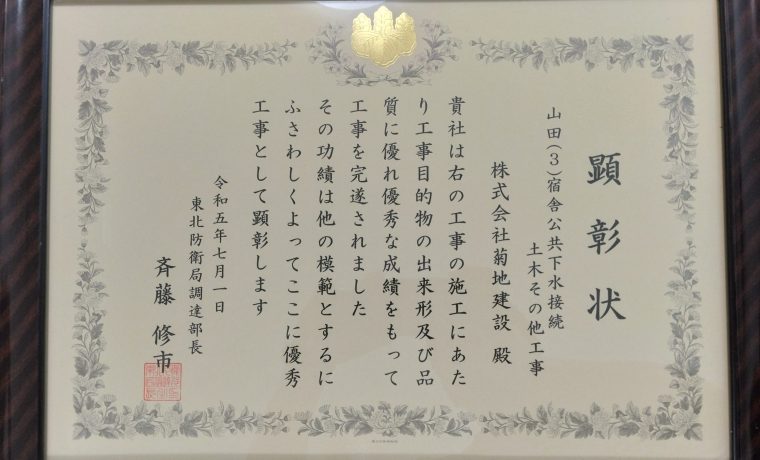 顕彰状
山田(3)宿舎公共下水接続
土木その他工事
株式会社菊地建設 殿
貴社は右の工事の施工にあた
り工事目的物の出来形及び品
質に優れ優秀な成績をもって
工事を完遂されました
その功績は他の模範とするに
ふさわしくよってここに優秀
工事として顕彰します
令和五年七月一日
東北防衛局調達部長
斉藤 修市